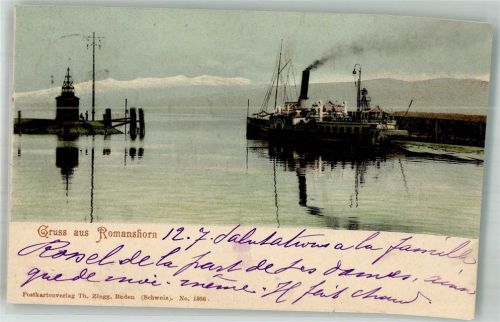 Gruss aus Romanshorn 12.7 Salutations a la famille
Rossel de la part de ses dames, ainsi
que de moi-même. Il fait chaud
Postkartenverlag Th. Zingg, Baden (Schweiz). No. 1366.